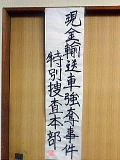 現金輸送車強奪事件
特別捜査本部